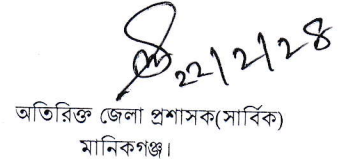 ২২/২/২৪
অতিরিক্ত জেলা প্রশাসক(সার্বিক)
মানিকগঞ্জ।